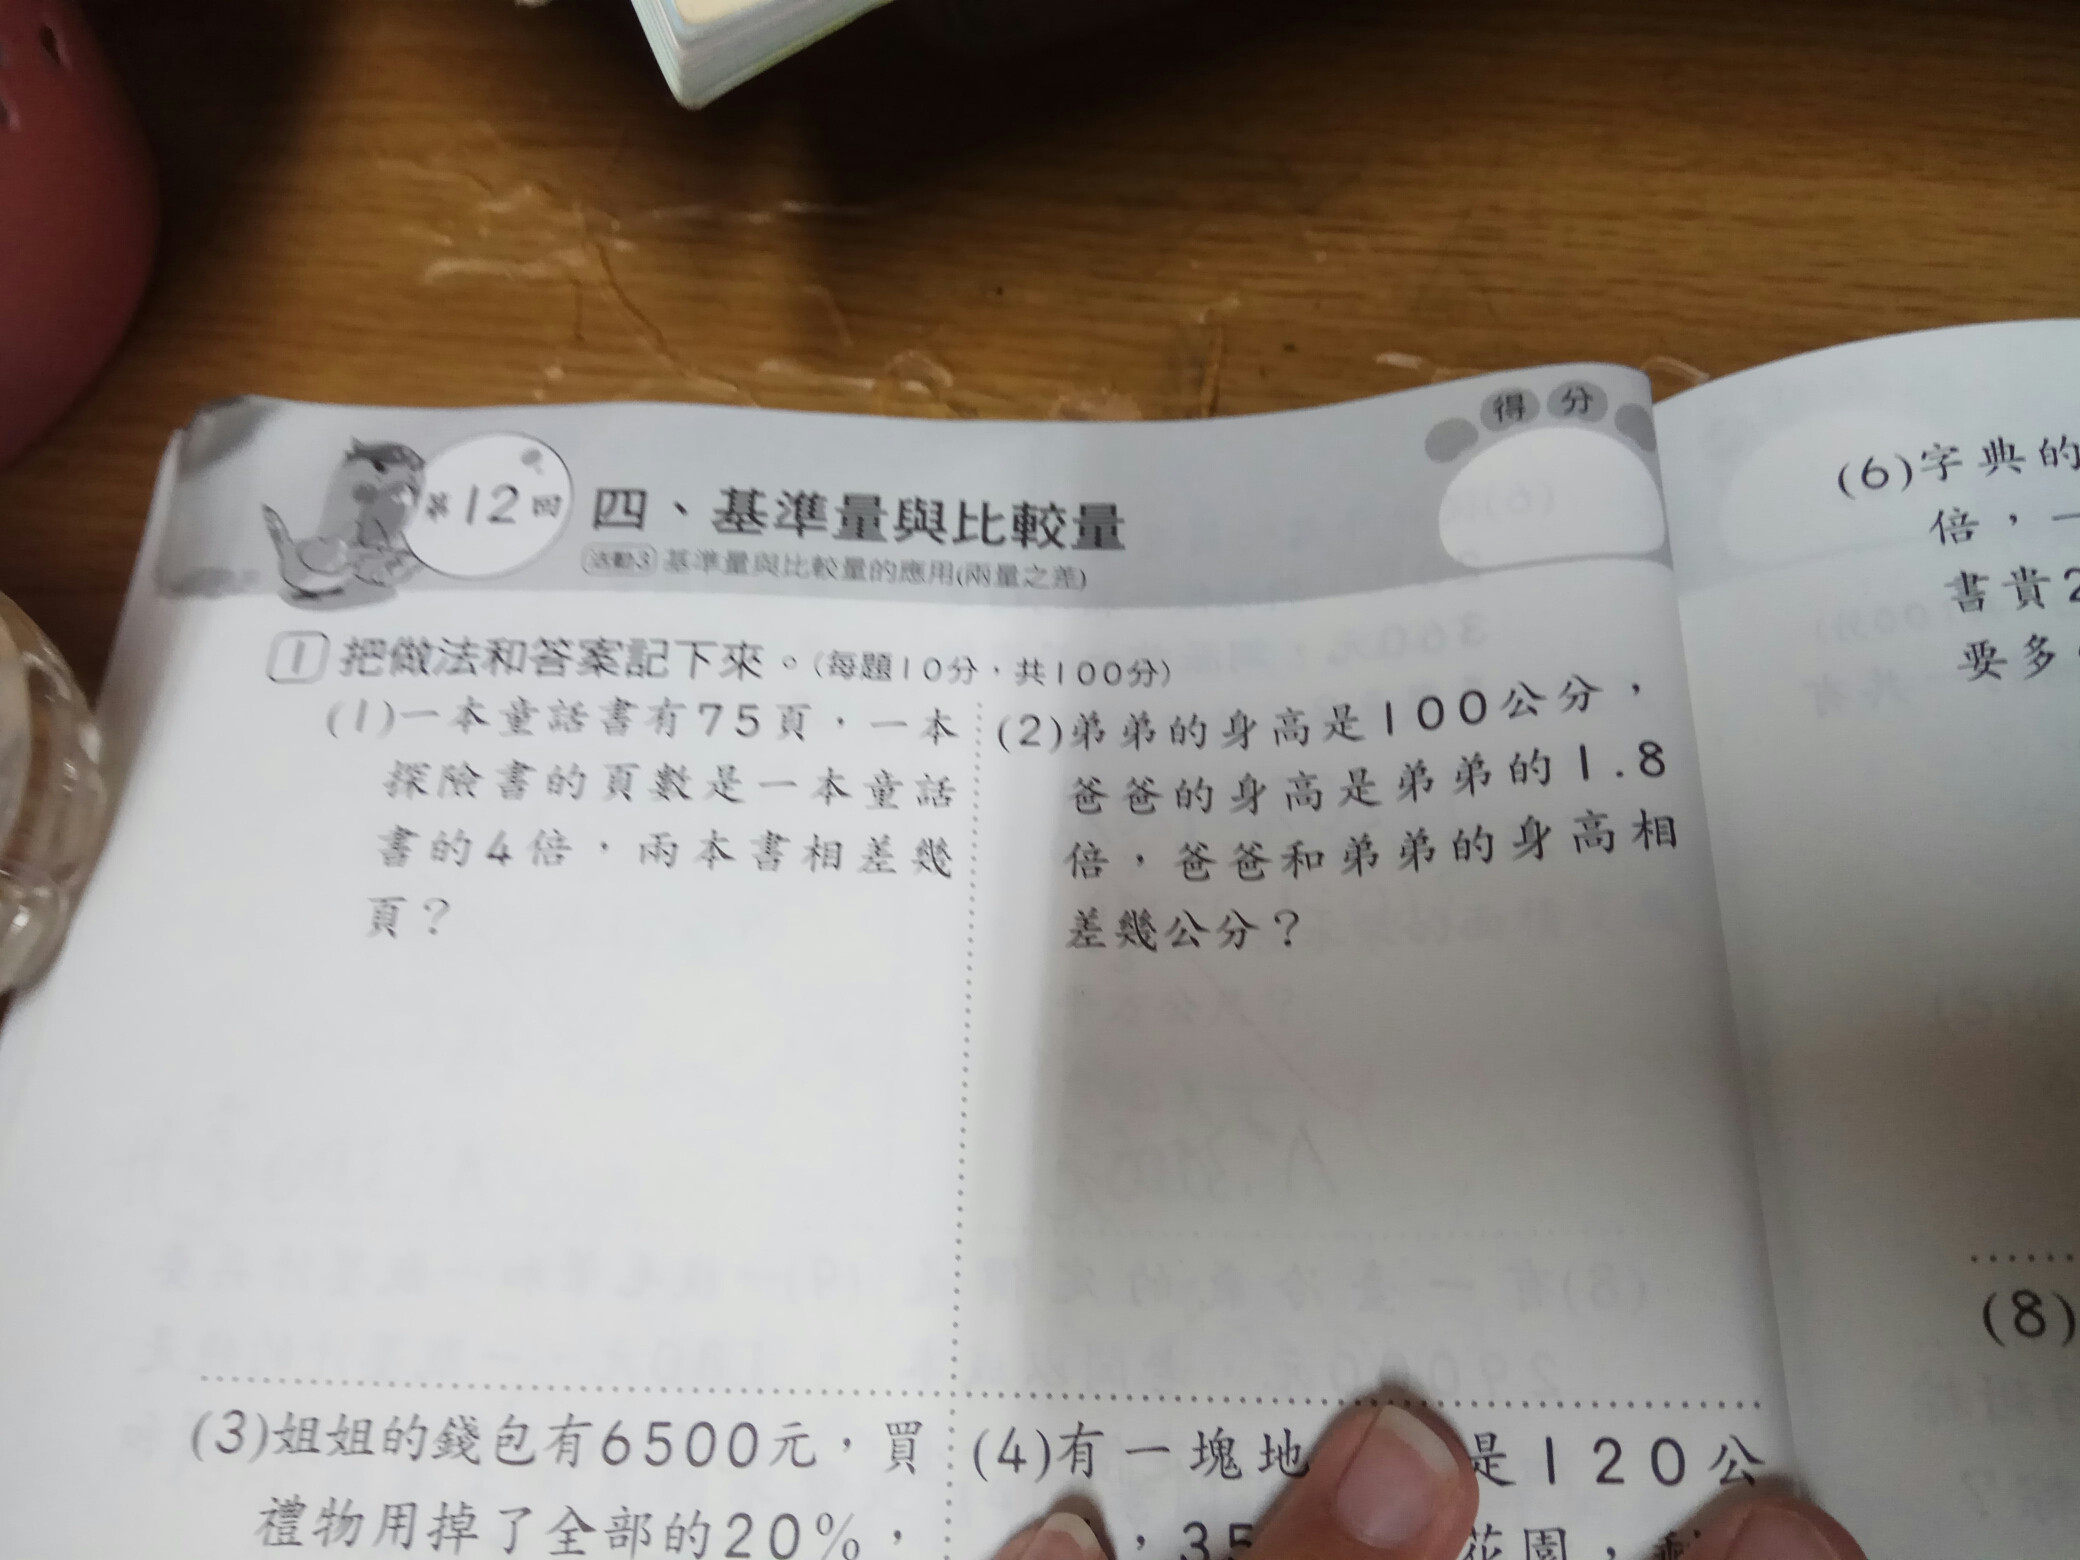 得分
第12回
四、基準量與比較量
活動3 基準量與比較量的應用(兩量之差)
1 把做法和答案記下來。(每題10分,共100分)
(1)一本童話書有75頁,一本
探險書的頁數是一本童話
書的4倍,兩本書相差幾
頁?
(2)弟弟的身高是100公分,
爸爸的身高是弟弟的1.8
倍,爸爸和弟弟的身高相
差幾公分?
(3)姐姐的錢包有6500元,買
禮物用掉了全部的20%,
(4)有一塊地 是120公
,35 花園,
(6)字典的
倍,一
書貴2
要多
(8)